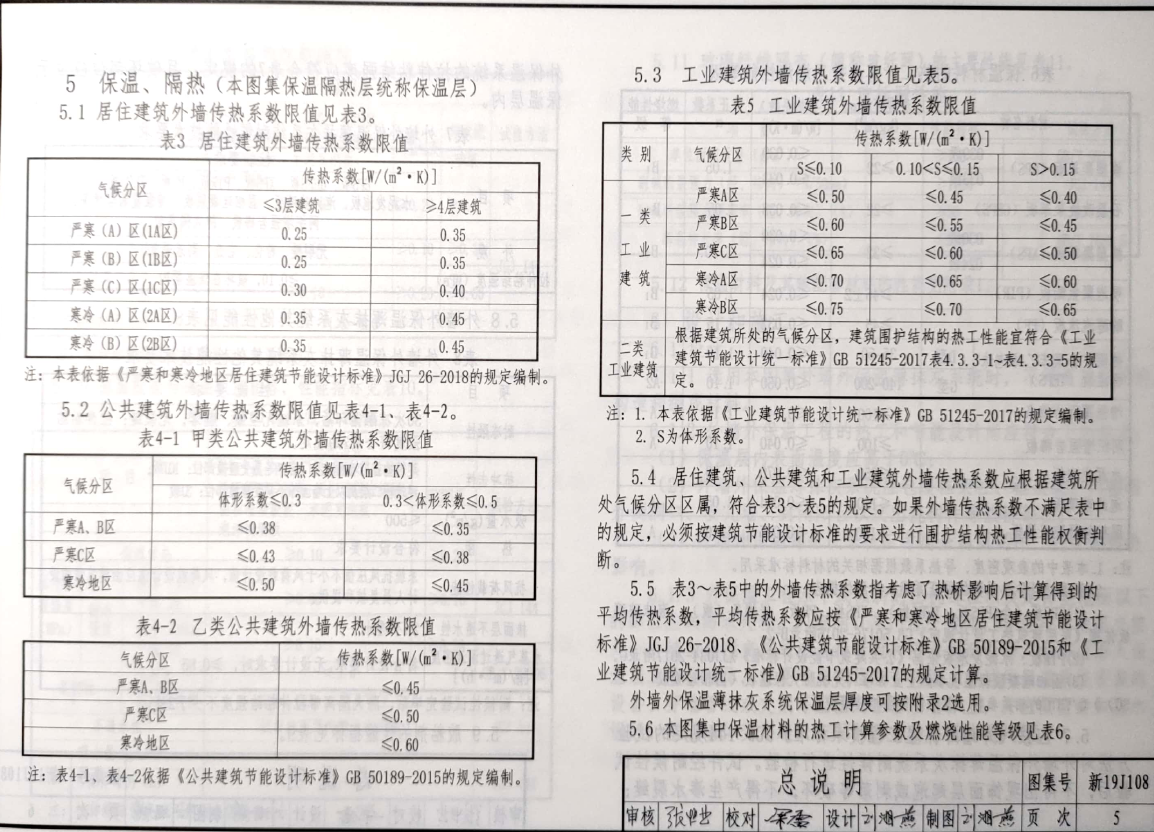 5 保温、隔热（本图集保温隔热层统称保温层）
5.1 居住建筑外墙传热系数限值见表3。
表3 居住建筑外墙传热系数限值
气候分区 传热系数[W/(m²·K)]
≤3层建筑 ≥4层建筑
严寒（A）区(1A区) 0.25 0.35
严寒（B）区(1B区) 0.25 0.35
严寒（C）区(1C区) 0.30 0.40
寒冷（A）区(2A区) 0.35 0.45
寒冷（B）区(2B区) 0.35 0.45
注：本表依据《严寒和寒冷地区居住建筑节能设计标准》JGJ 26-2018的规定编制。
5.2 公共建筑外墙传热系数限值见表4-1、表4-2。
表4-1 甲类公共建筑外墙传热系数限值
气候分区 传热系数[W/(m²·K)]
体形系数≤0.3 0.3<体形系数≤0.5
严寒A、B区 ≤0.38 ≤0.35
严寒C区 ≤0.43 ≤0.38
寒冷地区 ≤0.50 ≤0.45
表4-2 乙类公共建筑外墙传热系数限值
气候分区 传热系数[W/(m²·K)]
严寒A、B区 ≤0.45
严寒C区 ≤0.50
寒冷地区 ≤0.60
注：表4-1、表4-2依据《公共建筑节能设计标准》GB 50189-2015的规定编制。
5.3 工业建筑外墙传热系数限值见表5。
表5 工业建筑外墙传热系数限值
类别 气候分区 传热系数[W/(m²·K)]
S≤0.10 0.10<S≤0.15 S>0.15
一类工业建筑 严寒A区 ≤0.50 ≤0.45 ≤0.40
严寒B区 ≤0.60 ≤0.55 ≤0.45
严寒C区 ≤0.65 ≤0.60 ≤0.50
寒冷A区 ≤0.70 ≤0.65 ≤0.60
寒冷B区 ≤0.75 ≤0.70 ≤0.65
二类工业建筑 根据建筑所处的气候分区，建筑围护结构的热工性能宜符合《工业
建筑节能设计统一标准》GB 51245-2017表4.3.3-1~表4.3.3-5的规
定。
注：1. 本表依据《工业建筑节能设计统一标准》GB 51245-2017的规定编制。
2. S为体形系数。
5.4 居住建筑、公共建筑和工业建筑外墙传热系数应根据建筑所
处气候分区区属，符合表3～表5的规定。如果外墙传热系数不满足表中
的规定，必须按建筑节能设计标准的要求进行围护结构热工性能权衡判
断。
5.5 表3～表5中的外墙传热系数指考虑了热桥影响后计算得到的
平均传热系数，平均传热系数应按《严寒和寒冷地区居住建筑节能设计
标准》JGJ 26-2018、《公共建筑节能设计标准》GB 50189-2015和《工
业建筑节能设计统一标准》GB 51245-2017的规定计算。
外墙外保温薄抹灰系统保温层厚度可按附录2选用。
5.6 本图集中保温材料的热工计算参数及燃烧性能等级见表6。
总说明 图集号 新19J108
审核 校对 设计 制图 页次 5